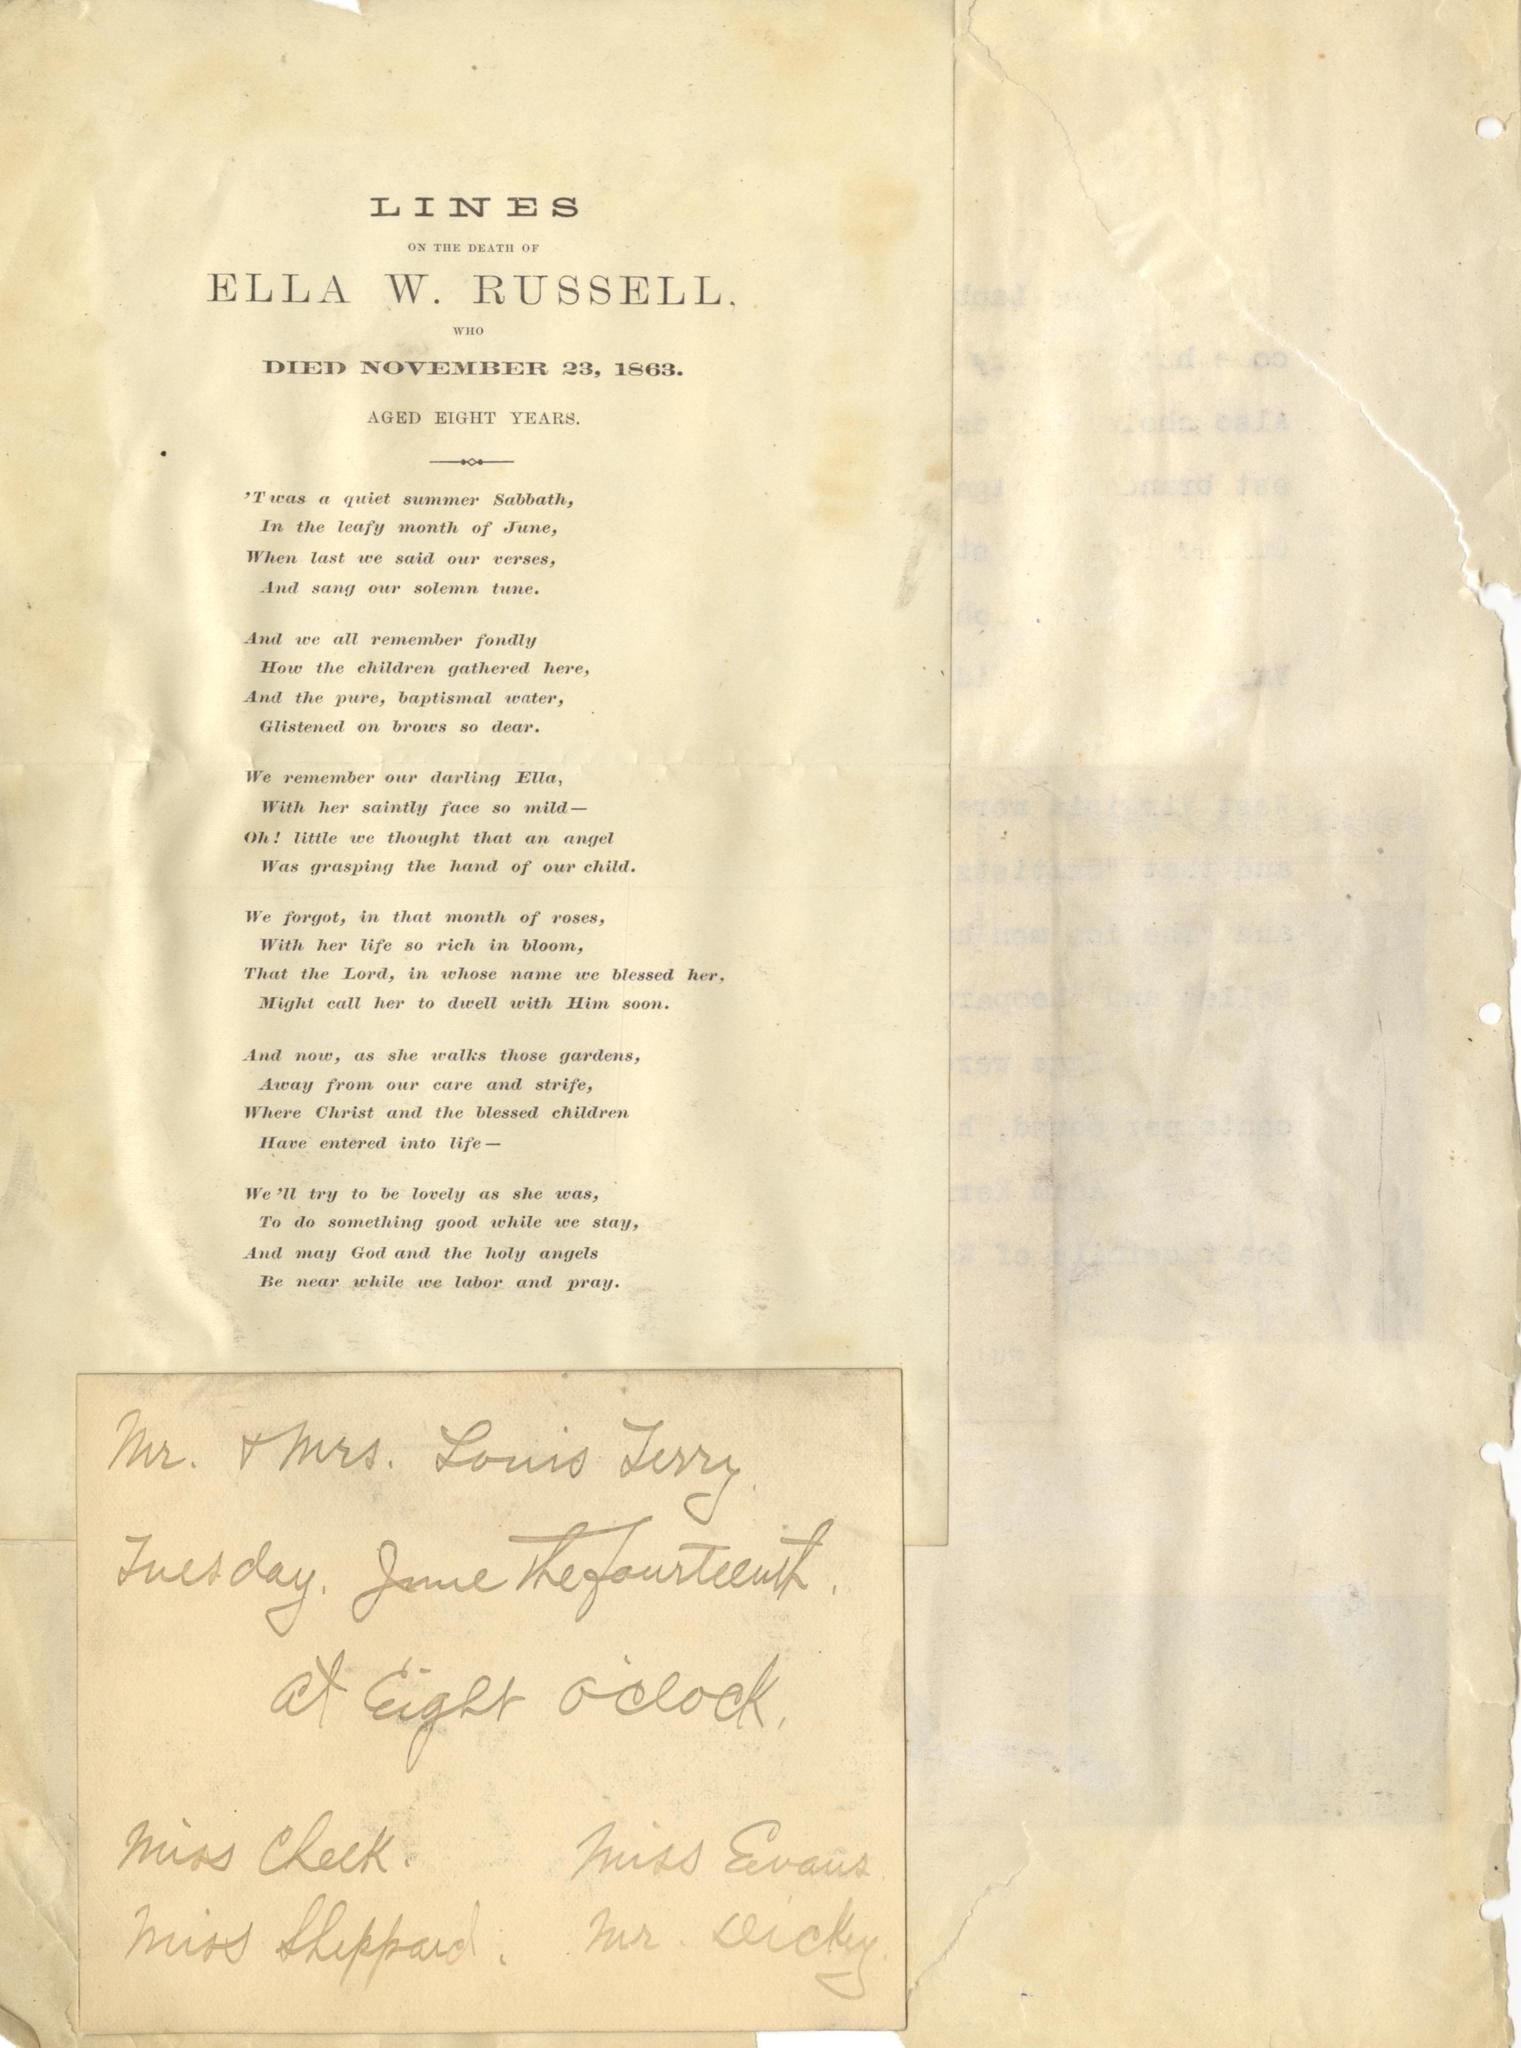 LINES
ON THE DEATH OF
ELLA W. RUSSELL,
WHO
DIED NOVEMBER 23, 1863.
AGED EIGHT YEARS.
'T was a quiet summer Sabbath,
In the leafy month of June,
When last we said our verses,
And sang our solemn tune.
And we all remember fondly
How the children gathered here,
And the pure, baptismal water,
Glistened on brows so dear.
We remember our darling Ella,
With her saintly face so mild—
Oh! little we thought that an angel
Was grasping the hand of our child.
We forgot, in that month of roses,
With her life so rich in bloom,
That the Lord, in whose name we blessed her,
Might call her to dwell with Him soon.
And now, as she walks those gardens,
Away from our care and strife,
Where Christ and the blessed children
Have entered into life—
We'll try to be lovely as she was,
To do something good while we stay,
And may God and the holy angels
Be near while we labor and pray.
Mr. & Mrs. Louis Terry.
Tuesday. June the fourteenth.
at Eight o'clock.
Miss Cheek. Miss Evans.
Miss Sheppard. Mr. Dickey.